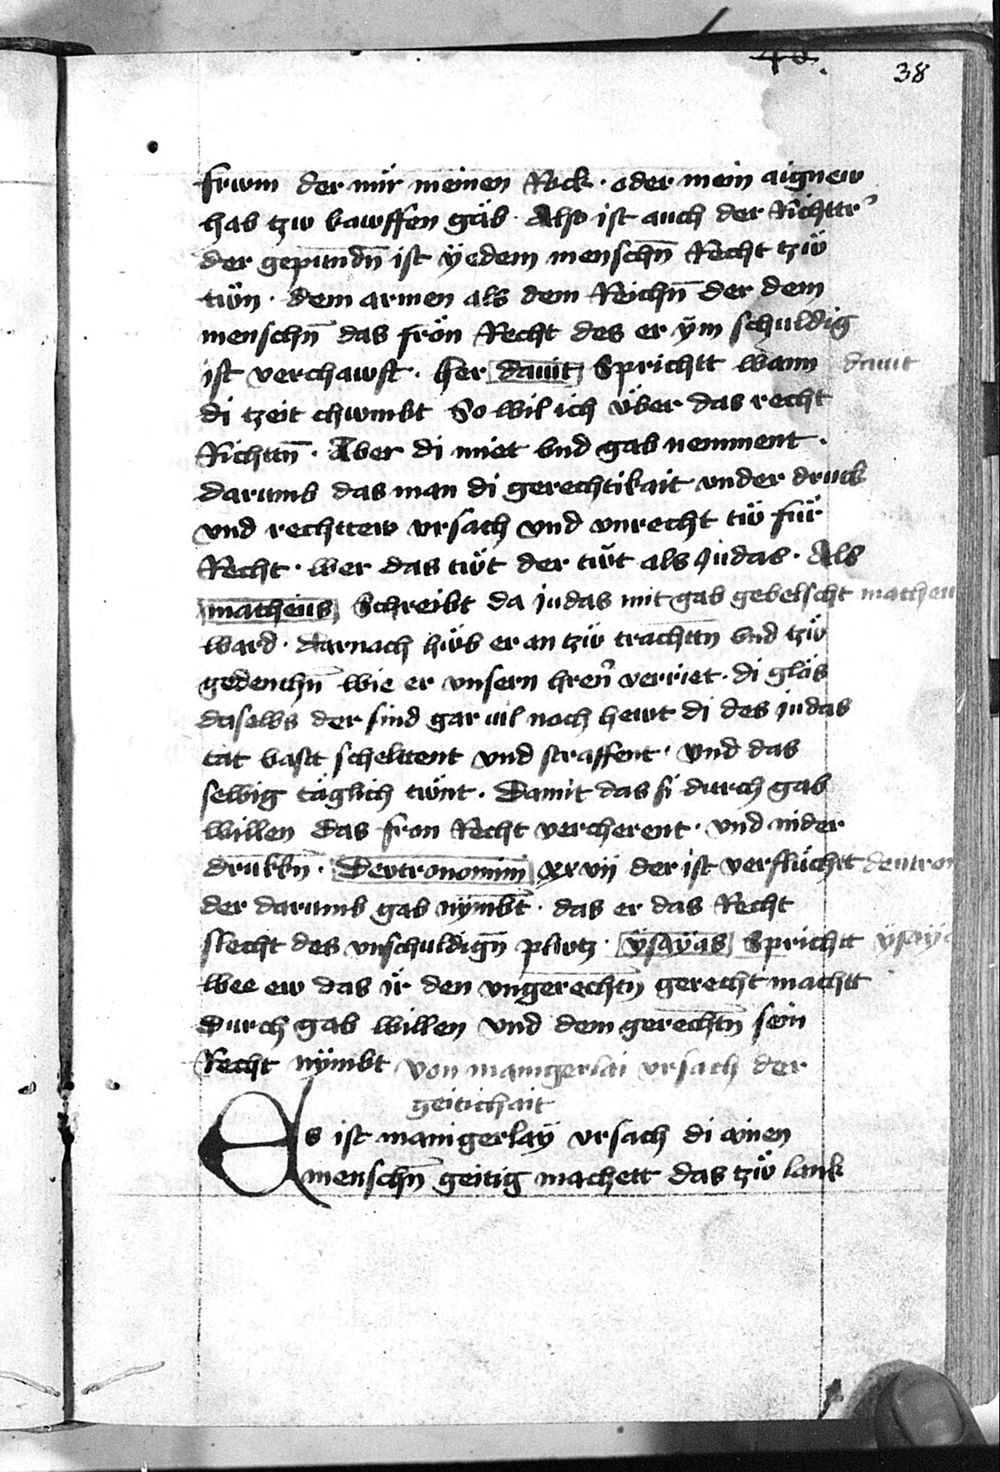 38
frwm der mir meinen Rock · oder mein aignew
hab tzw kawffen gäb · Also ist auch der Richttr
der gepundn̄ ist ÿedem menschn̄ Recht tzẅ
tẅn · dem armen als dem Reichn̄ der dem
menschn̄ das frön Recht des er ÿm schuldig
ist verchawft · her dauit Sprichtt wann dauit
di tzeit chwmbt So wil ich über das recht
Richttn̄ · Aber di miet vnd gab nemment ·
darumb das man di gerechtikait vnder druck
vnd rechttew vrsach vnd vnrecht tẅ für
Recht · wer das tẅt der tẅt als Judas · Als
matheus Schreibt da judas mit gab gevelscht matheu
ward · darnach hẅb er an tzẅ trachttn vnd tzẅ
gedenchn̄ wie er vnsern hren̄ verriet · di gläs
daselbs der sind gar vil noch hewt di des judas
tät vastt schelttent vnd straffent · vnd das
selbig täglich tẅnt · Damit das si durch gab
willen das fron Recht vercherent · vnd nider
drukkn̄ · Devtronomiu̅ xxvij der ist verflüchtt deutron
der darumb gab nÿmbt · das er das Recht
slecht des vnschuldign̄ plwtz · ÿsaÿas Sprichtt ÿsaÿa
wee ew das ir den vngerechtn̄ gerecht machtt
durch gab willen vnd dem gerechtn̄ sein
Recht nÿmbt von manigerlai vrsach der
geitichait
Es ist manigerlaÿ vrsach di ainen
menschn̄ geitig machett das tzẅ lank